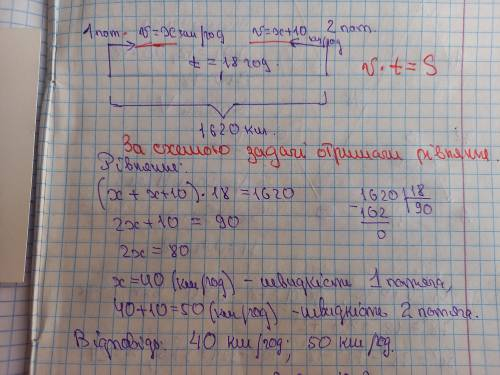 1 пот. v=x км/год v=x+10 км/год 2 пот.
t = 18 год.
v · t = S
1620 км.
За схемою задачі отримали рівняння.
Рівняння:
(x + x+10) · 18 = 1620
1620 | 18
- 162 | 90
0
2x+10 = 90
2x = 80
x=40 (км/год) - швидкість 1 потяга,
40+10=50 (км/год) - швидкість 2 потяга.
Відповідь: 40 км/год; 50 км/год.